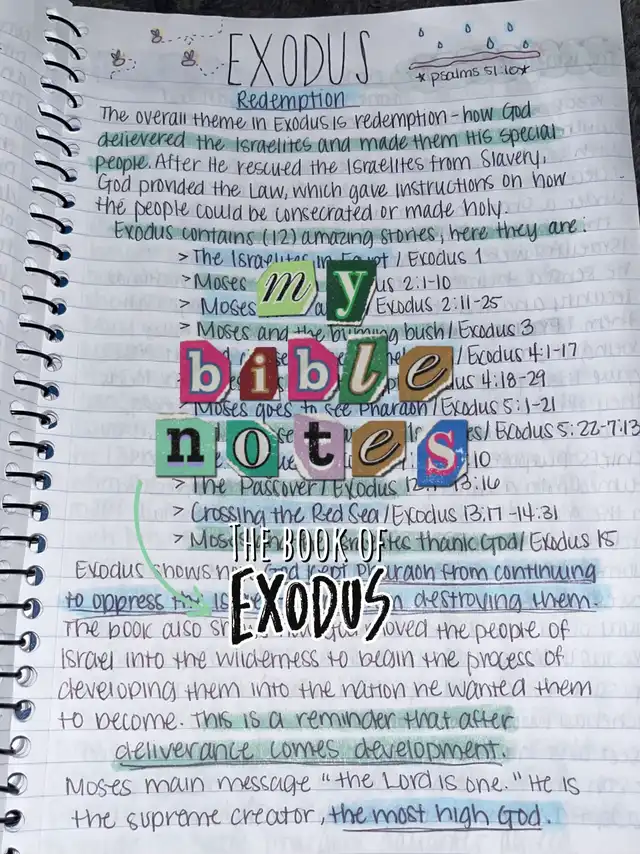 EXODUS
*psalms 51:10*
Redemption
The overall theme in Exodus is redemption - how God
delievered the Israelites and made them His special
people. After He rescued the Israelites from slavery,
God provided the Law, which gave instructions on how
the people could be consecrated or made holy.
Exodus contains (12) amazing stories, here they are:
> The Israelites in Egypt / Exodus 1
> Moses Exodus 2:1-10
> Moses Exodus 2:11-25
> Moses and the burning bush / Exodus 3
/ Exodus 4:1-17
Exodus 4:18-29
> Moses goes to see Pharaoh / Exodus 5:1-21
/ Exodus 5:22-7:13
10
> The Passover / Exodus 13:16
> Crossing the Red Sea / Exodus 13:17-14:31
> Moses thank God / Exodus 15
my
bible
notes
THE BOOK OF
EXODUS
Exodus shows God kept Pharaoh from continuing
to oppress destroying them.
The book also moved the people of
Israel into the wilderness to begin the process of
developing them into the nation he wanted them
to become. This is a reminder that after
deliverance comes development.
Moses main message "the Lord is one." He is
the supreme creator, the most high God.